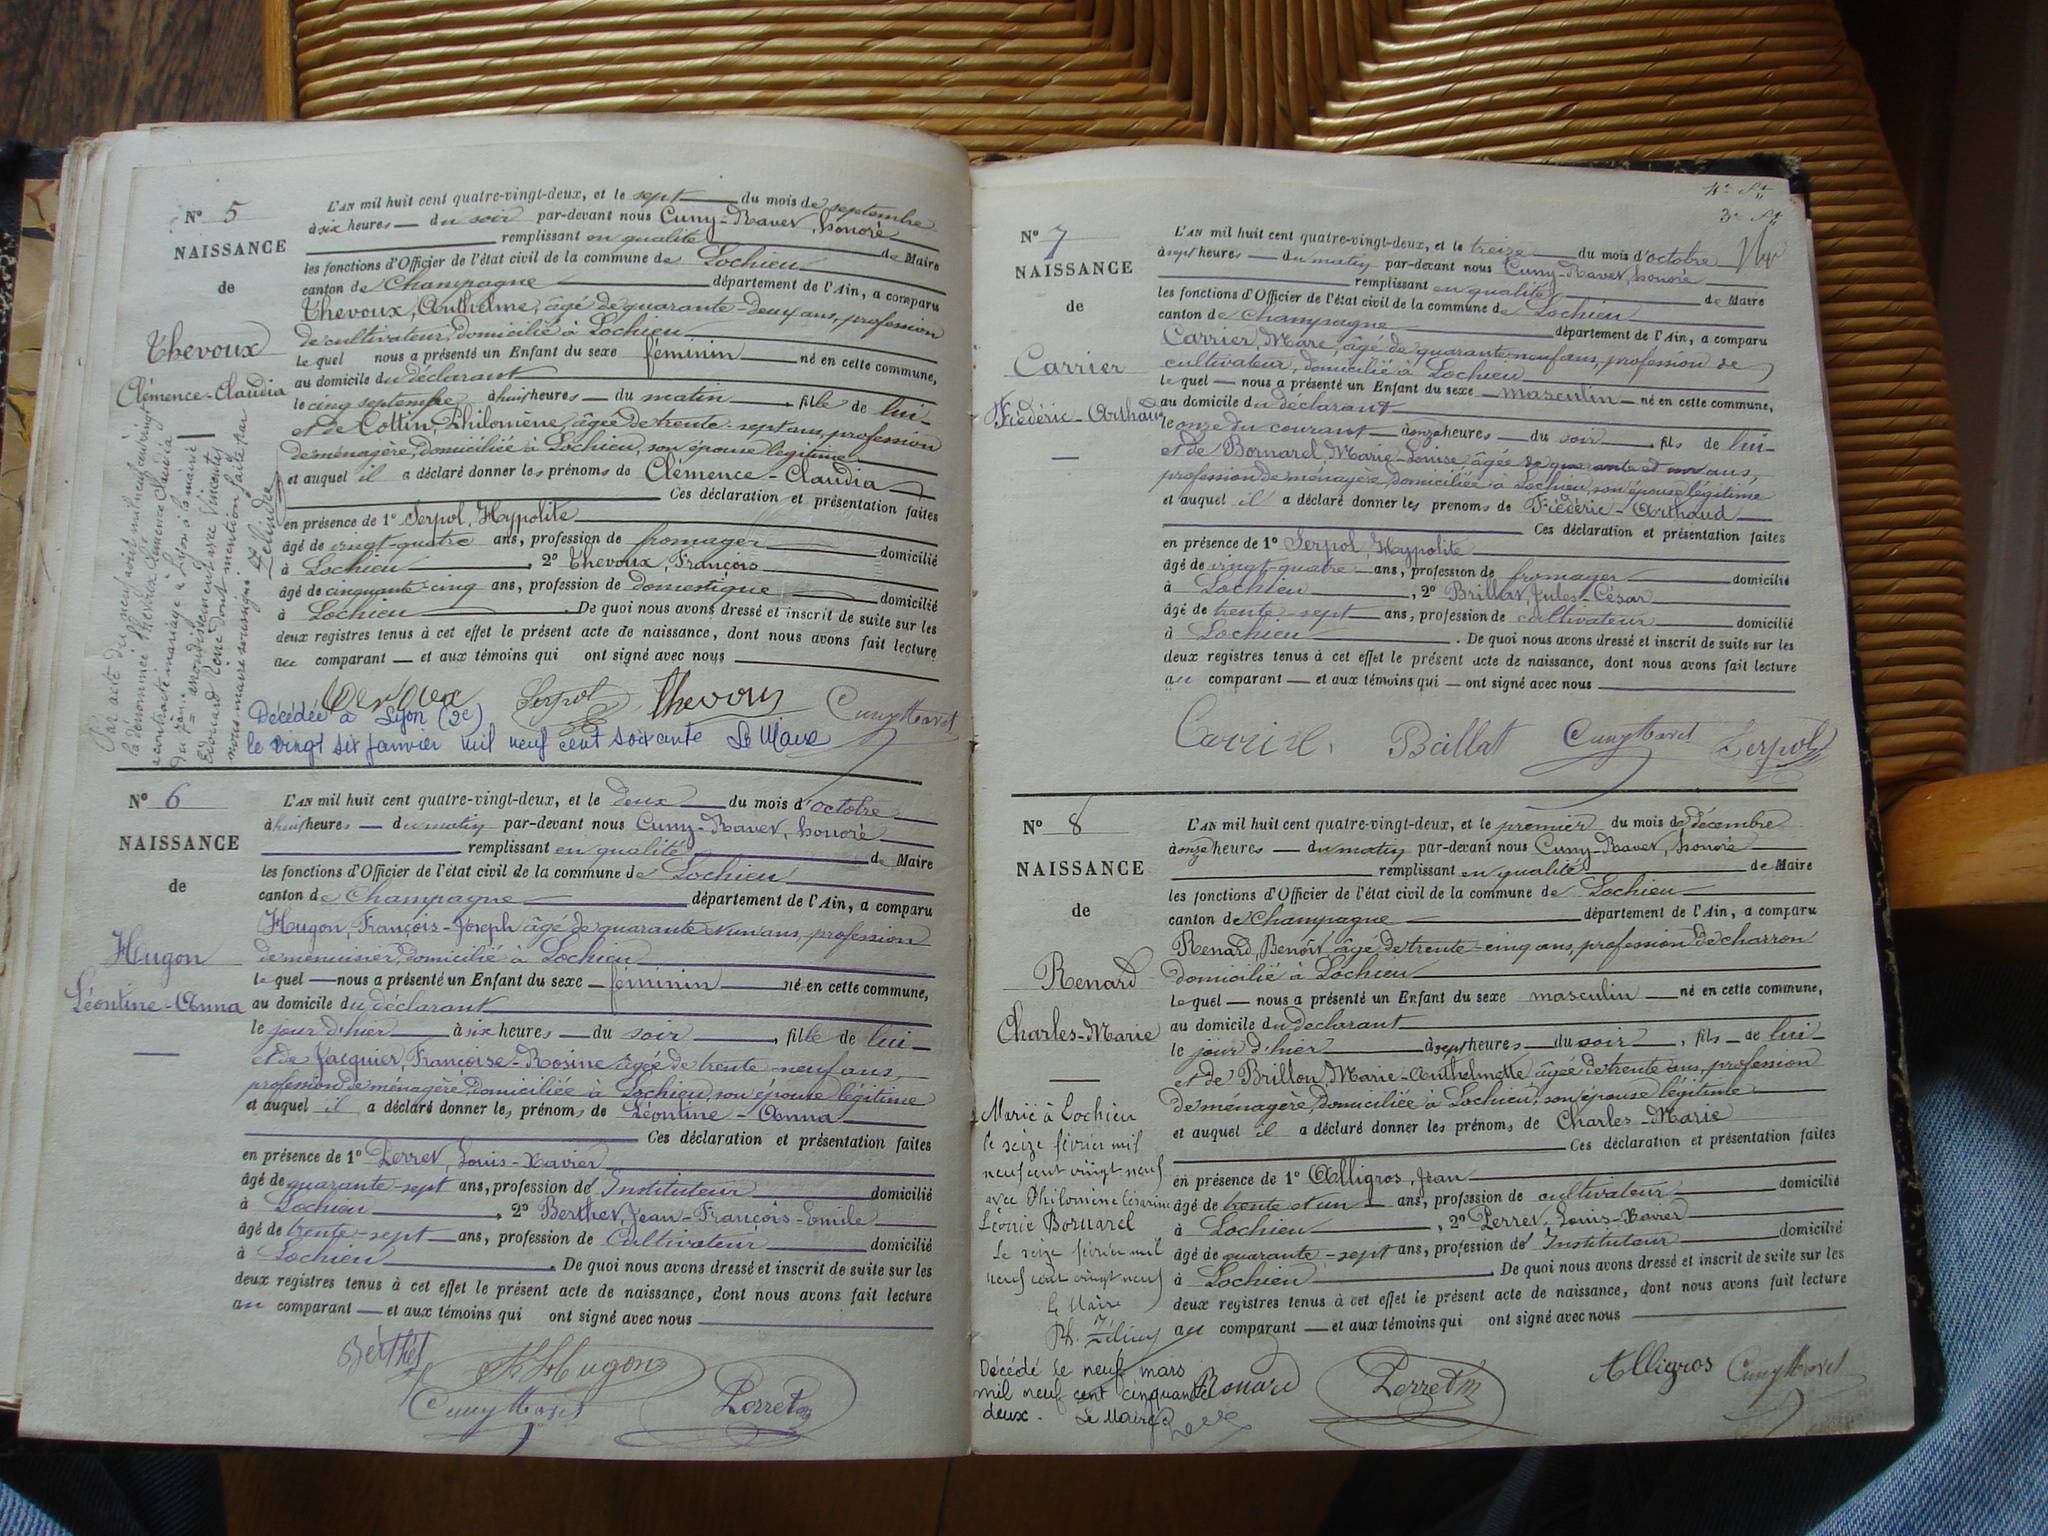 N° 5
NAISSANCE
de
Thevoux
Clémence-Claudia
L'AN mil huit cent quatre-vingt-deux, et le sept du mois de septembre
à six heures du soir par-devant nous Cuny-Ravet, honoré
remplissant en qualité de Maire
les fonctions d'Officier de l'état civil de la commune de Lochieu
canton de Champagne département de l'Ain, a comparu
Thevoux, Anthelme, âgé de quarante-deux ans, profession
de cultivateur, domicilié à Lochieu
le quel nous a présenté un Enfant du sexe féminin né en cette commune,
au domicile du déclarant
le cinq septembre à huit heures du matin, fille de lui
et de Cottin, Philomène, âgée de trente-sept ans, profession
de ménagère, domiciliée à Lochieu, son épouse légitime
et auquel il a déclaré donner les prénoms de Clémence-Claudia
Ces déclaration et présentation faites
en présence de 1° Serpol, Hypolite
âgé de vingt-quatre ans, profession de fromager domicilié
à Lochieu, 2° Thevoux, François
âgé de cinquante-cinq ans, profession de domestique domicilié
à Lochieu. De quoi nous avons dressé et inscrit de suite sur les
deux registres tenus à cet effet le présent acte de naissance, dont nous avons fait lecture
au comparant et aux témoins qui ont signé avec nous
Serpol Thevoux Cuny Ravet
Décédée à Lyon (2e)
le vingt six janvier mil neuf cent soixante Le Maire
Par acte du neuf août mil neuf cent vingt
la dénommée Thevoux Clémence Claudia
a contracté mariage à Lyon à la mairie
du arrondissement avec Vincent
Edouard dont mention faite par
nous maire soussigné
N° 6
NAISSANCE
de
Hugon
Léontine-Anna
L'AN mil huit cent quatre-vingt-deux, et le deux du mois d'octobre
à huit heures du matin par-devant nous Cuny-Ravet, honoré
remplissant en qualité de Maire
les fonctions d'Officier de l'état civil de la commune de Lochieu
canton de Champagne département de l'Ain, a comparu
Hugon, François-Joseph âgé de quarante et un ans, profession
de menuisier, domicilié à Lochieu
le quel nous a présenté un Enfant du sexe féminin né en cette commune,
au domicile du déclarant
le jour d'hier à six heures du soir, fille de lui
et de Jacquier, Françoise-Rosine âgée de trente-neuf ans,
profession de ménagère, domiciliée à Lochieu, son épouse légitime
et auquel il a déclaré donner les prénoms de Léontine-Anna
Ces déclaration et présentation faites
en présence de 1° Perret, Louis-Xavier
âgé de quarante-sept ans, profession de Instituteur domicilié
à Lochieu, 2° Berthet, Jean-François-Emile
âgé de trente-sept ans, profession de Cultivateur domicilié
à Lochieu. De quoi nous avons dressé et inscrit de suite sur les
deux registres tenus à cet effet le présent acte de naissance, dont nous avons fait lecture
au comparant et aux témoins qui ont signé avec nous
Berthet Hugon
Cuny Ravet Perret
N° 7
NAISSANCE
de
Carrier
Frédéric-Arthaud
L'AN mil huit cent quatre-vingt-deux, et le treize du mois d'octobre
à sept heures du matin par-devant nous Cuny-Ravet, honoré
remplissant en qualité de Maire
les fonctions d'Officier de l'état civil de la commune de Lochieu
canton de Champagne département de l'Ain, a comparu
Carrier, Marc, âgé de quarante-neuf ans, profession de
cultivateur, domicilié à Lochieu
le quel nous a présenté un Enfant du sexe masculin né en cette commune,
au domicile du déclarant
le onze du courant à onze heures du soir, fils de lui
et de Bornarel, Marie-Louise âgée de quarante et ans,
profession de ménagère, domiciliée à Lochieu, son épouse légitime
et auquel il a déclaré donner les prenoms de Frédéric-Arthaud
Ces déclaration et présentation faites
en présence de 1° Serpol, Hypolite
âgé de vingt-quatre ans, profession de fromager domicilié
à Lochieu, 2° Brillat, Jules-César
âgé de trente-sept ans, profession de cultivateur domicilié
à Lochieu. De quoi nous avons dressé et inscrit de suite sur les
deux registres tenus à cet effet le présent acte de naissance, dont nous avons fait lecture
au comparant et aux témoins qui ont signé avec nous
Carrier Brillat Cuny Ravet Serpol
N° 8
NAISSANCE
de
Renard
Charles-Marie
L'AN mil huit cent quatre-vingt-deux, et le premier du mois de décembre
à onze heures du matin par-devant nous Cuny-Ravet, honoré
remplissant en qualité de Maire
les fonctions d'Officier de l'état civil de la commune de Lochieu
canton de Champagne département de l'Ain, a comparu
Renard, Benoît âgé de trente-cinq ans, profession de charron
domicilié à Lochieu
le quel nous a présenté un Enfant du sexe masculin né en cette commune,
au domicile du declarant
le jour d'hier à sept heures du soir, fils de lui
et de Brillon, Marie-Anthelmette âgée de trente ans, profession
de ménagère, domiciliée à Lochieu, son épouse légitime
et auquel il a déclaré donner les prénoms de Charles-Marie
Ces déclaration et présentation faites
en présence de 1° Alligros, Jean
âgé de trente et un ans, profession de cultivateur domicilié
à Lochieu, 2° Perret, Louis-Xavier
âgé de quarante-sept ans, profession de Instituteur domicilié
à Lochieu. De quoi nous avons dressé et inscrit de suite sur les
deux registres tenus à cet effet le présent acte de naissance, dont nous avons fait lecture
au comparant et aux témoins qui ont signé avec nous
Renard Perret Alligros Cuny Ravet
Marié à Lochieu
le seize février mil
neuf cent vingt neuf
avec Philomène Césarine
Léonie Bornarel
Le seize février mil
neuf cent vingt neuf
Le Maire
Décédé le neuf mars
mil neuf cent cinquante
deux. Le Maire